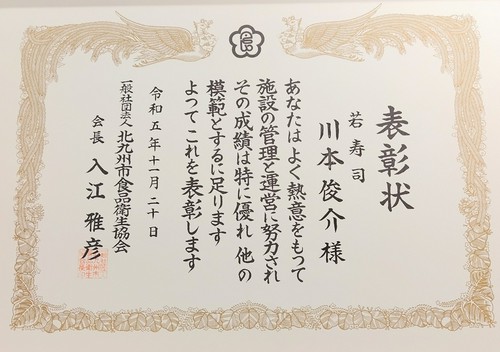 表彰状
若寿司
川本俊介様
あなたはよく熱意をもって
施設の管理と運営に努力され
その成績は特に優れ 他の
模範とするに足ります
よって これを表彰します
令和五年十一月二十日
一般社団法人 北九州市食品衛生協会
会長 入江雅彦